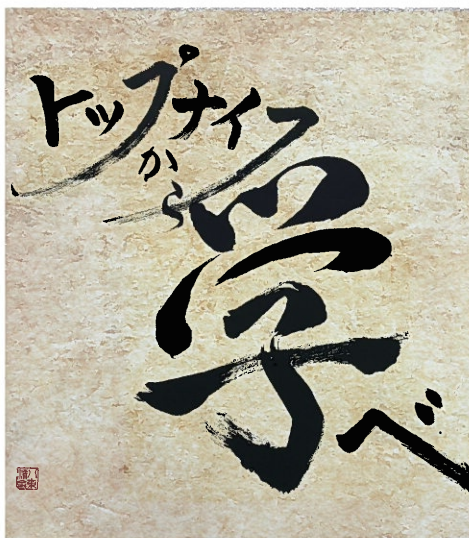 トップナイフ
から
学べ